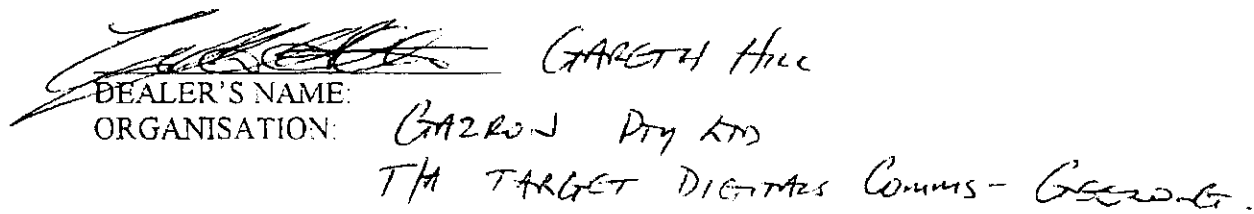 GARETH HILL
DEALER'S NAME:
ORGANISATION: GAZRON PTY LTD
T/A TARGET DIGITAL COMMS - GEELONG.